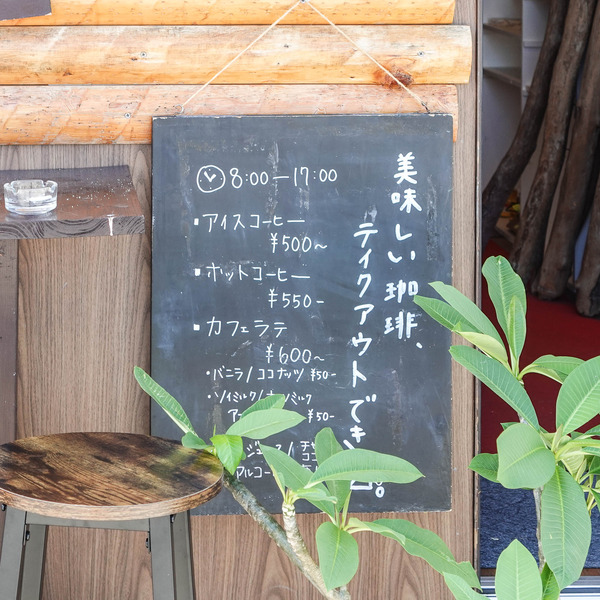 美味しい珈琲、
テイクアウトでき
8:00—17:00
▪アイスコーヒー
¥500~
▪ホットコーヒー
¥550-
▪カフェラテ
¥600~
・バニラ/ココナッツ ¥50-
・ソイミルク/ ミルク
アー ¥50-
ジュース/
アルコー